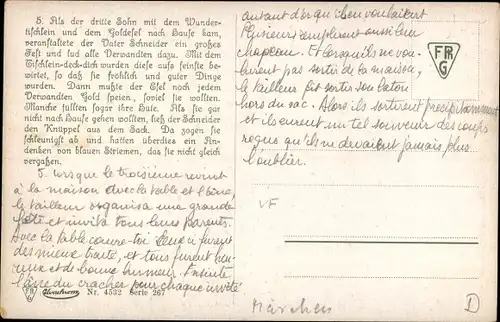 5. Als der dritte Sohn mit dem Wunder-
tischlein und dem Goldesel nach Hause kam,
veranstaltete der Vater Schneider ein großes
Fest und lud alle Verwandten dazu. Mit dem
Tischlein-deck-dich wurden diese aufs feinste be-
wirtet, so daß sie fröhlich und guter Dinge
wurden. Dann mußte der Esel noch jedem
Verwandten Gold speien, soviel sie wollten.
Manche füllten sogar ihre Hüte. Als sie gar
nicht nach Hause gehen wollten, ließ der Schneider
den Knüppel aus dem Sack. Da zogen sie
schleunigst ab und hatten überdies ein An-
denken von blauen Striemen, das sie nicht gleich
vergaßen.
5. Lorsque le troisieme revint
à la maison avec la table et l'âne,
le tailleur organisa une grande
fête et invita tous leurs parents.
Avec la table couvre-toi ceux-ci furent
des mieux traité, et tous furent heu-
reux et de bonne humeur. Ensuite
l'âne du cracher pour chaque invité
FR G
Uvachrom Nr. 4532 Serie 267
autant d'or qu'ils en voulaient
Plusieurs remplirent aussi leur
chapeau. Et lorsqu'ils ne vou-
lurent pas sortir de la maison,
le tailleur fit sortir son bâton
hors du sac. Alors ils sortirent précipitamment
et ils eurent un tel souvenir des coups
reçus qu'ils ne devaient jamais plus
l'oublier.
FR G
VF
Märchen
D